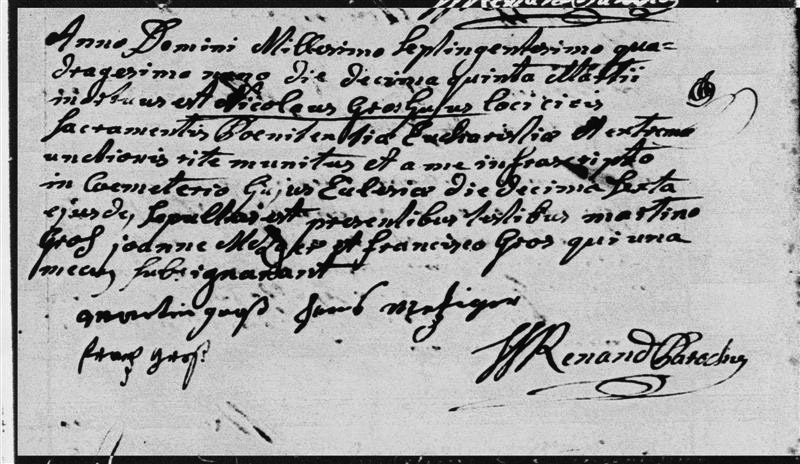 Anno Domini Millesimo Septingentesimo qua=
dragesimo nono die decima quinta Martii
mortuus est Nicolaus Gros hujus loci civis
Sacramentis Poenitentiæ Eucharistiæ Et extremæ
unctionis rite munitus et a me infrascripto
in Coemeterio hujus Eclesiæ die decima Sexta
ejusdē Sepultus est presentibus testibus martino
Groß joanne Metzger et francisco Gros qui una
mecū subsignarunt
martin groß hans metzger
frantz groß
Renand Parochus